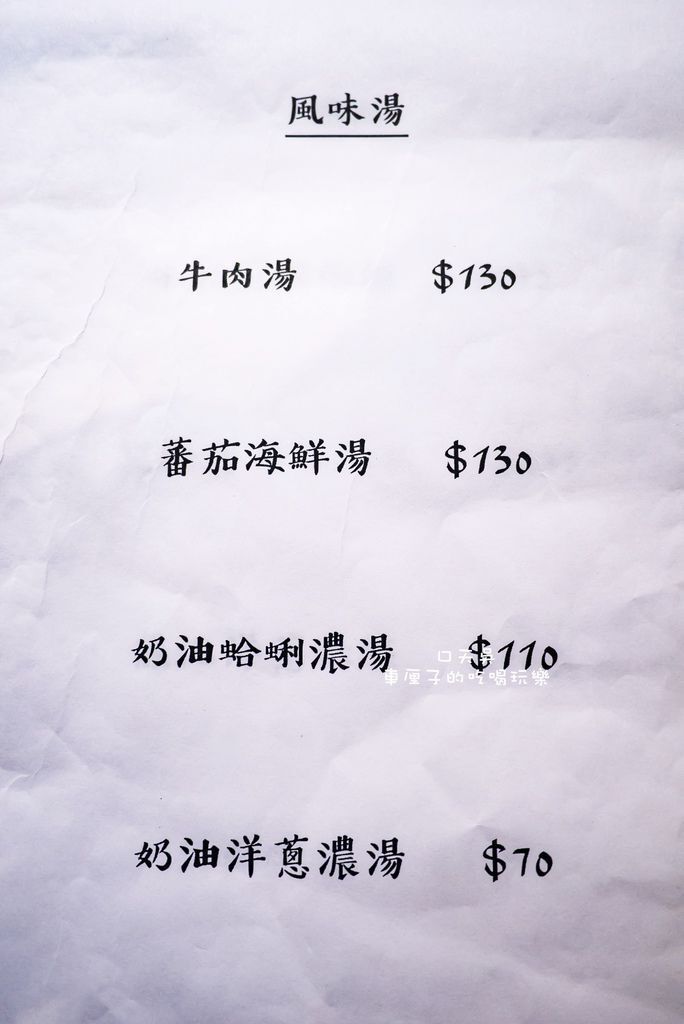 風味湯
牛肉湯 $130
蕃茄海鮮湯 $130
奶油蛤蜊濃湯 $110
車厘子的吃喝玩樂
奶油洋蔥濃湯 $70